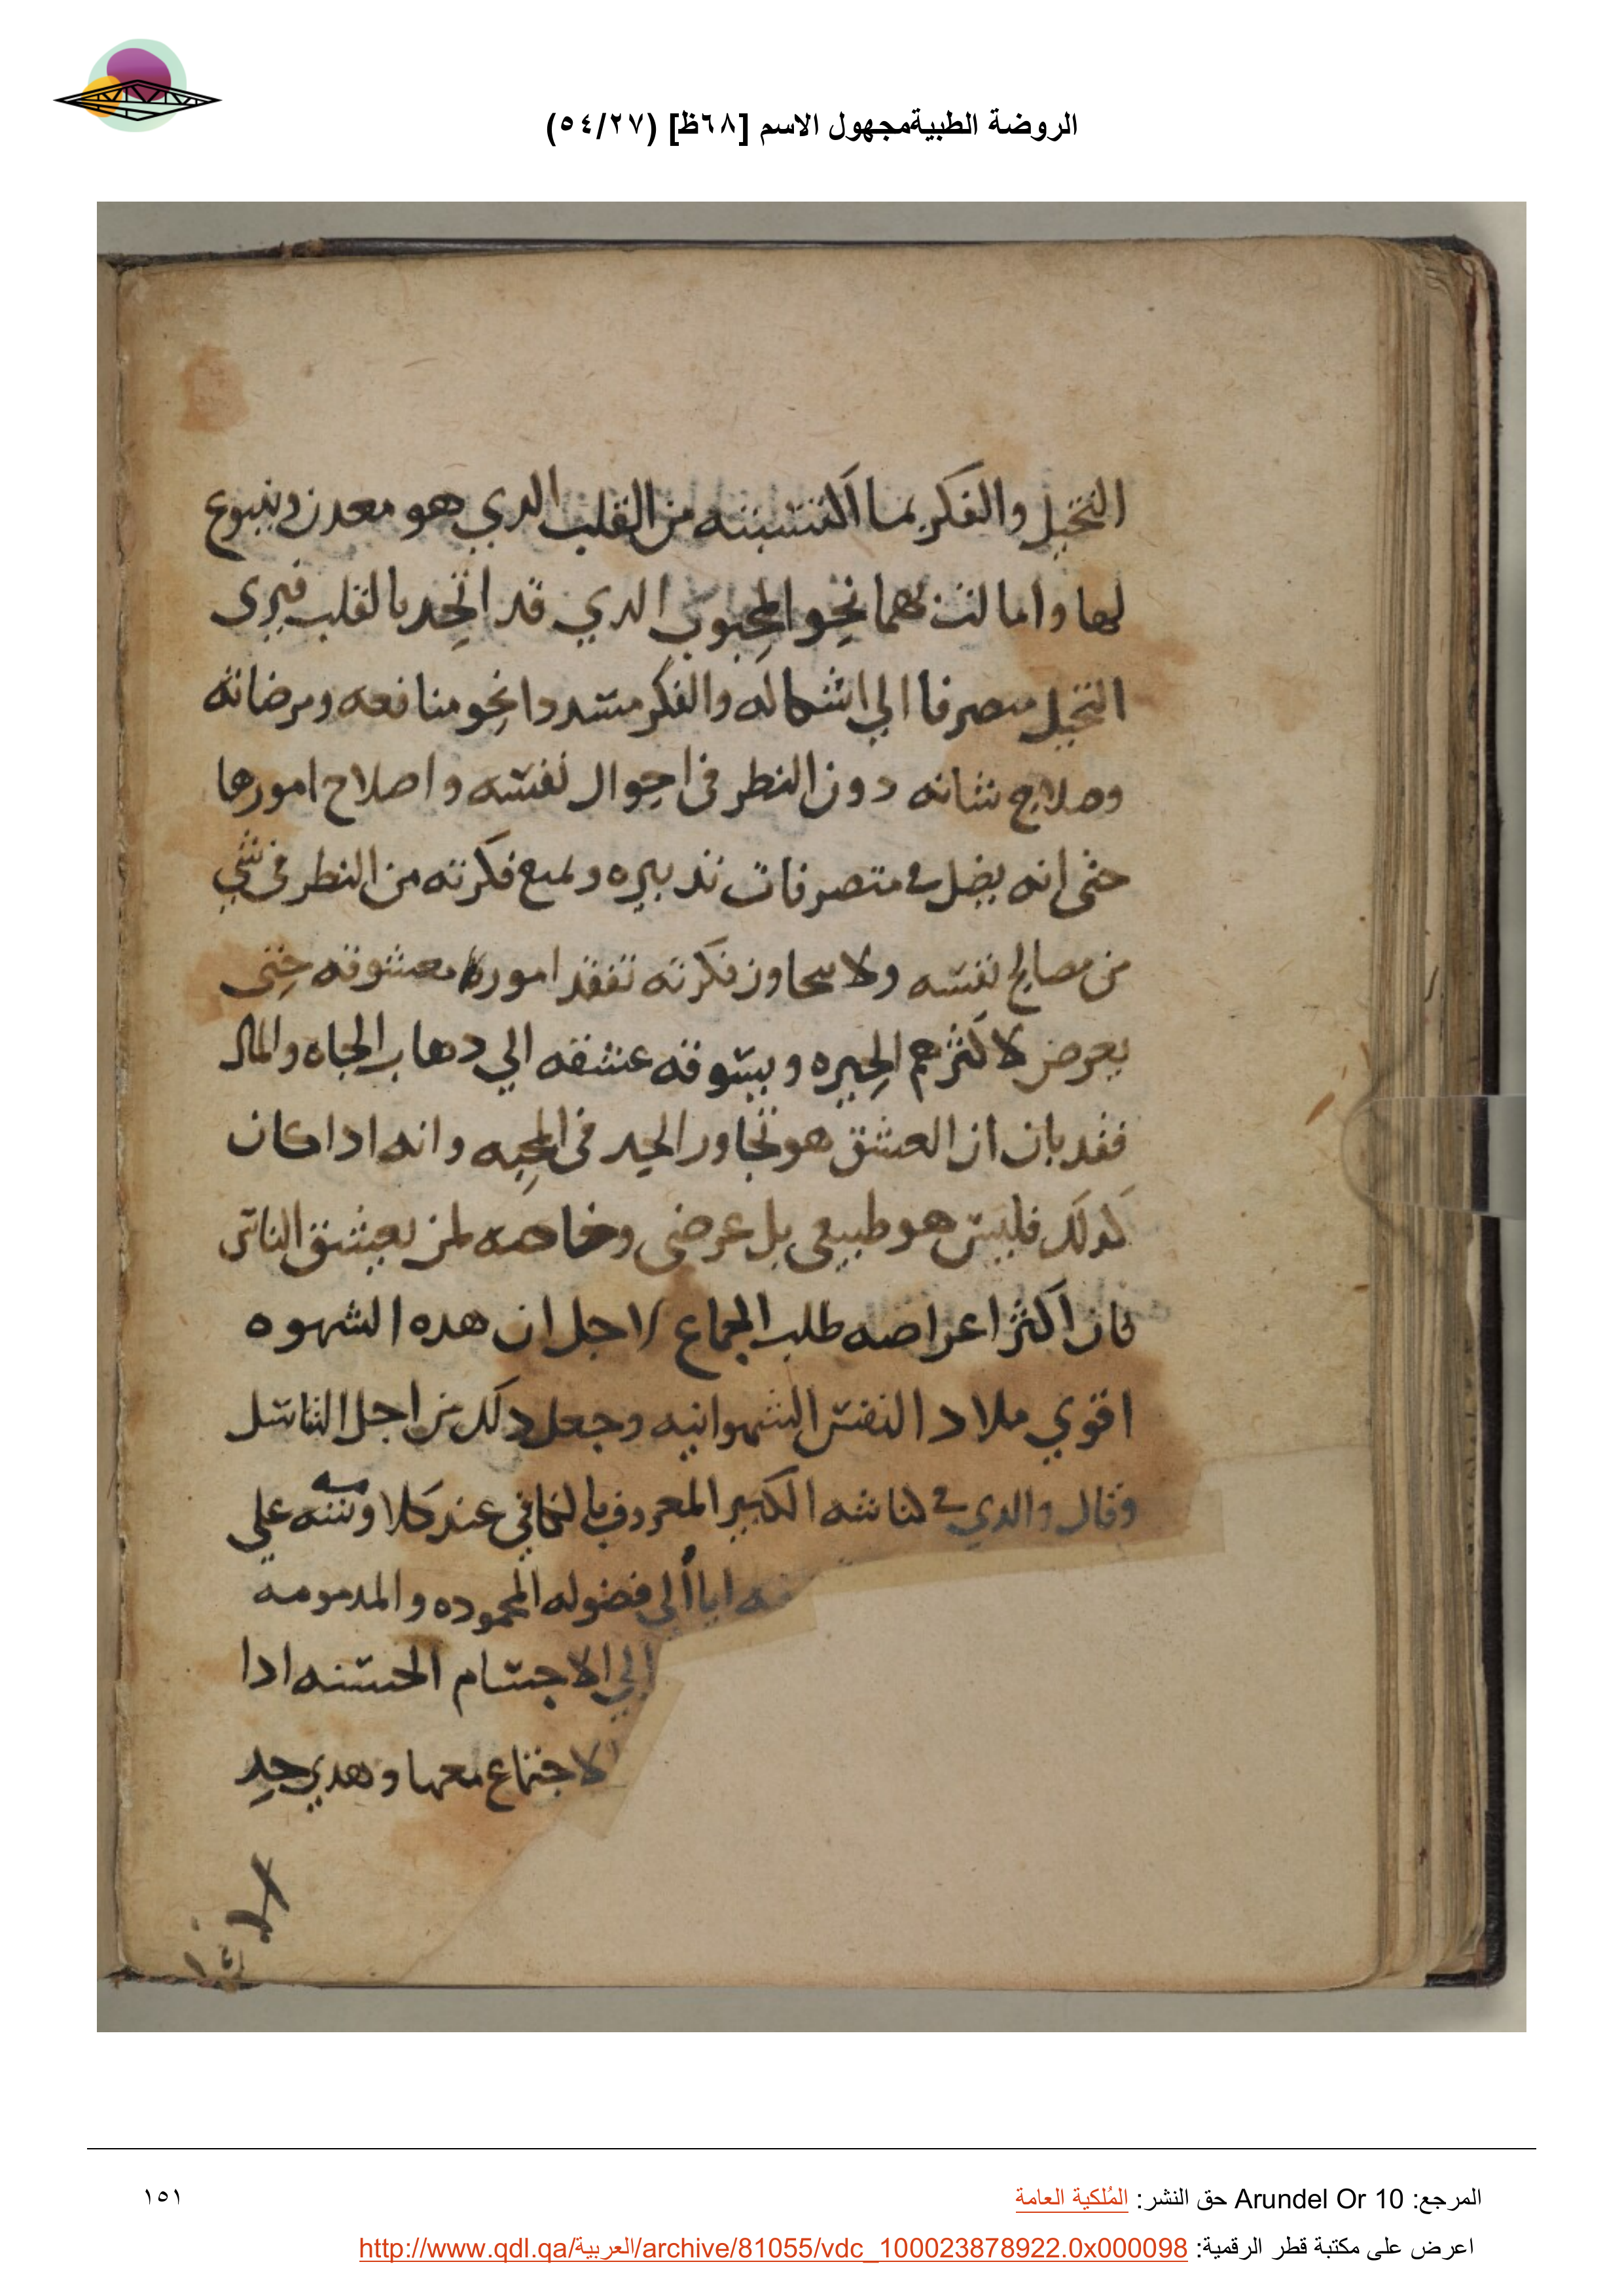 الروضة الطبيةمجهول الاسم [٦٨ظ] (٥٤/٢٧)
التخيل والفكر بما اكتسبته من القلب الدي هو معدن وينبوع
لها وامالت بهما نحو المحبوب الدي قد اتحد بالقلب فيرى
التخيل منصرفا الي اشكاله والفكر مسددا نحو منافعه ومرضاته
وصلاح شانه دون النطر في احوال نفسه واصلاح امورها
حتى انه يضل في متصرفات تدبيره ولمنع فكرته من النطر في شي
من مصالح نفسه ولا يتجاوز فكرته تفقد امور معشوقه حتى
يعرض لاكثرهم الحيره ويسوقه عشقه الي دهاب الجاه والمال
فقد بان ان العشق هو تجاوز الحد في المحبه وانه ادا كان
كدلك فليس هو طبيعي بل عرضي وخاصه لمن يعشق الناس
فان اكثر اعراضه طلب الجماع لاجل ان هده الشهوه
اقوي ملاد النفس الشهوانيه وجعل دلك من اجل التناسل
وقال والدي في كناشه الكبير المعروف بالكافي عند كلامه وننه علي
ايا ألى فضوله المحموده والمدمومه
الي الاجسام الحسنه ادا
الاجتماع معها وهدي حد
المرجع: Arundel Or 10 حق النشر: المُلكية العامة
١٥١
اعرض على مكتبة قطر الرقمية: http://www.qdl.qa/العربية/archive/81055/vdc_100023878922.0x000098